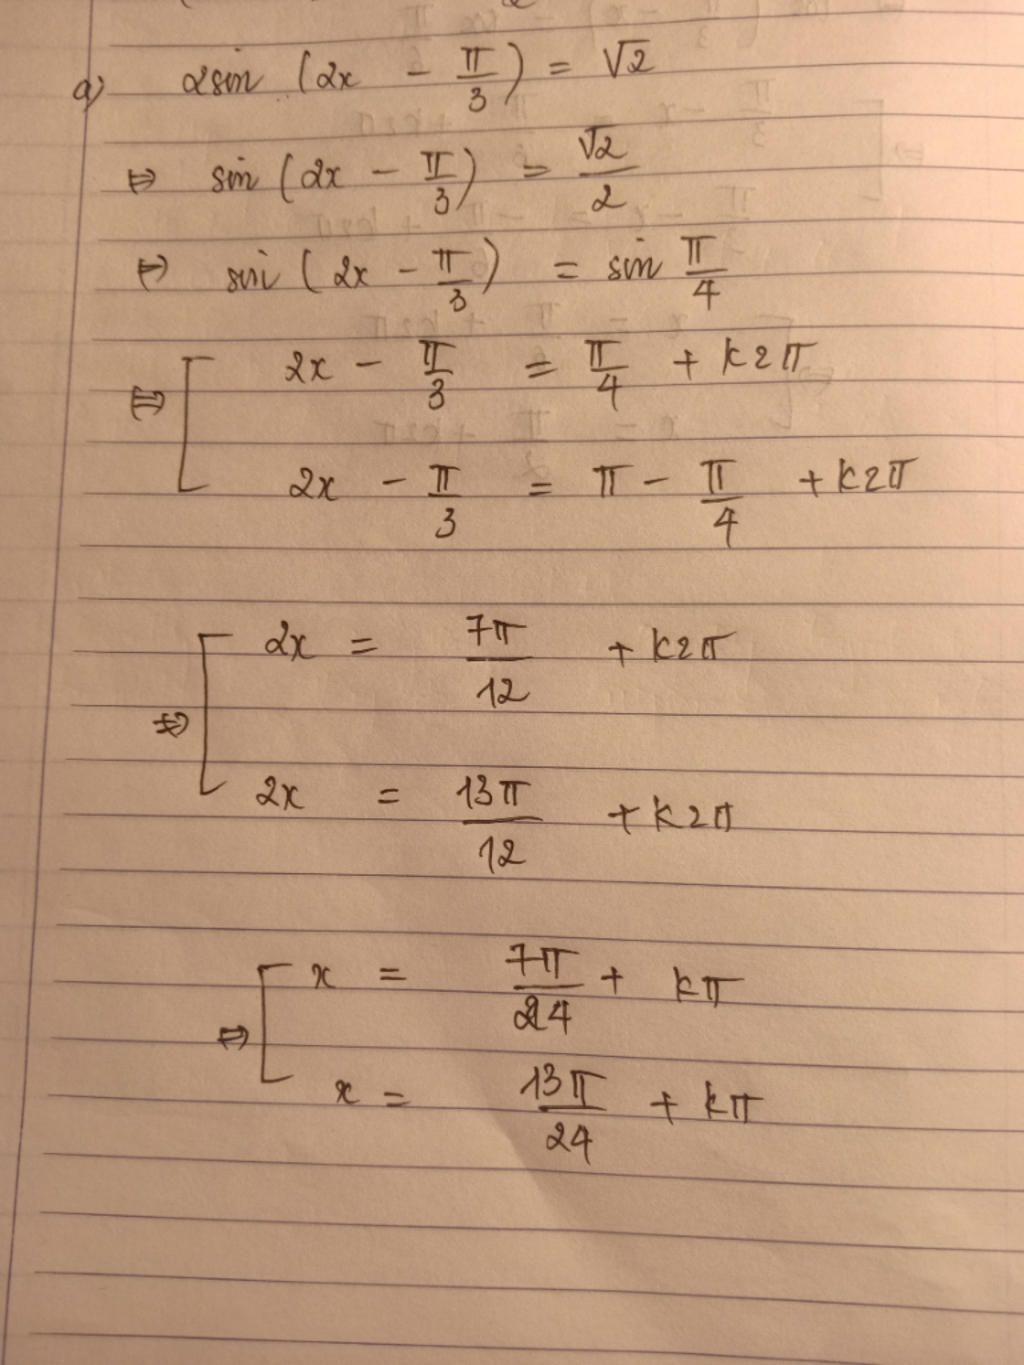 a) 2sin (2x - π/3) = √2
⇔ sin (2x - π/3) = √2/2
⇔ sin (2x - π/3) = sin π/4
⇔ [ 2x - π/3 = π/4 + k2π
2x - π/3 = π - π/4 + k2π
⇔ [ 2x = 7π/12 + k2π
2x = 13π/12 + k2π
⇔ [ x = 7π/24 + kπ
x = 13π/24 + kπ